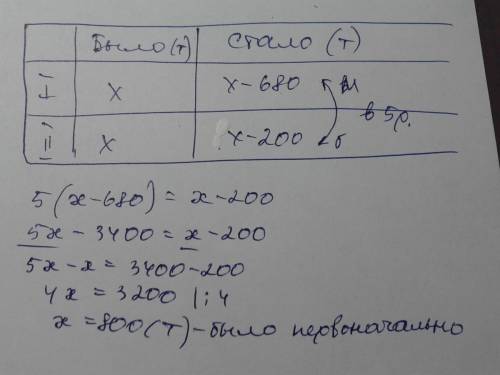 Было (т) Стало (т)
I х х-680 м
II х х-200 б в 5 р.
5(х-680) = х-200
5х - 3400 = х-200
5х-х = 3400-200
4х = 3200 |:4
х = 800 (т) - было первоначально